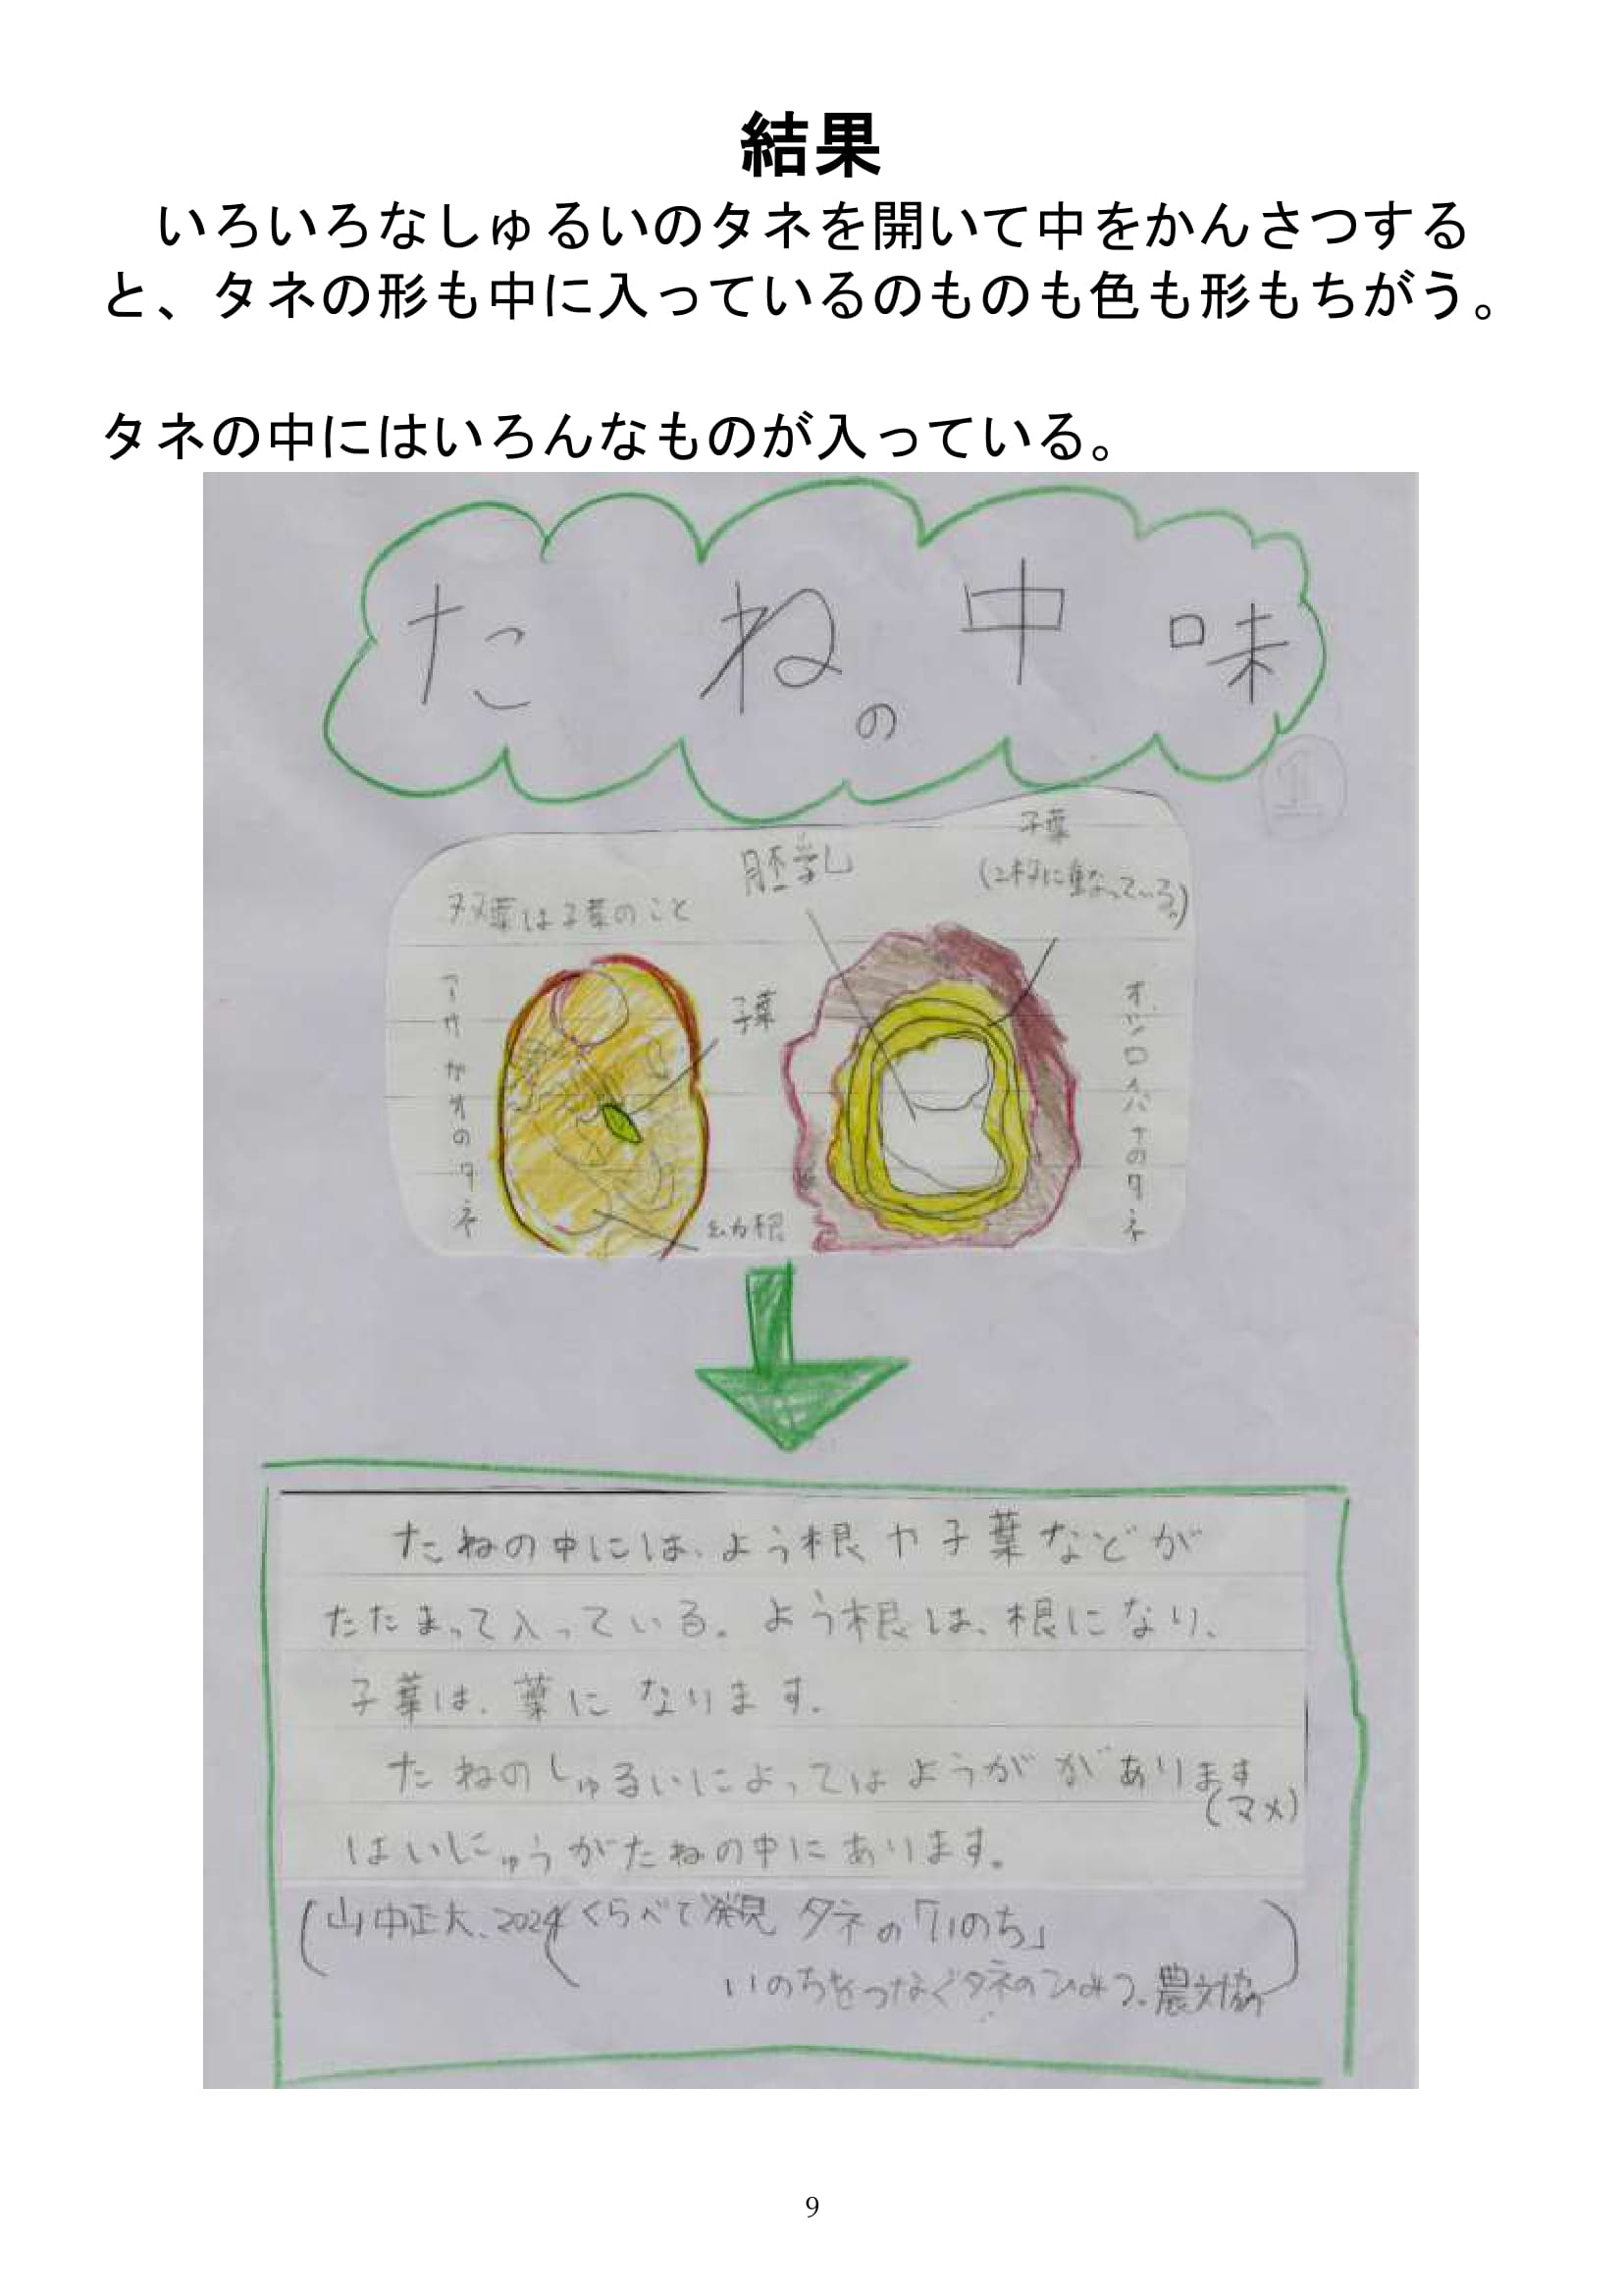 結果
いろいろなしゅるいのタネを開いて中をかんさつする
と、タネの形も中に入っているのものも色も形もちがう。
タネの中にはいろんなものが入っている。
たねの中味
1
子葉
(2枚に重なっている。)
胚乳
双葉は子葉のこと
アサガオのタネ
子葉
幼根
オシロイバナのタネ
たねの中には、よう根や子葉などが
たたまって入っている。よう根は、根になり、
子葉は、葉になります。
たねのしゅるいによってはようががあります
(マメ)
はいにゅうがたねの中にあります。
(山中正大、2024「くらべて発見 タネの「いのち」
いのちをつなぐタネのひみつ、農文協)
9